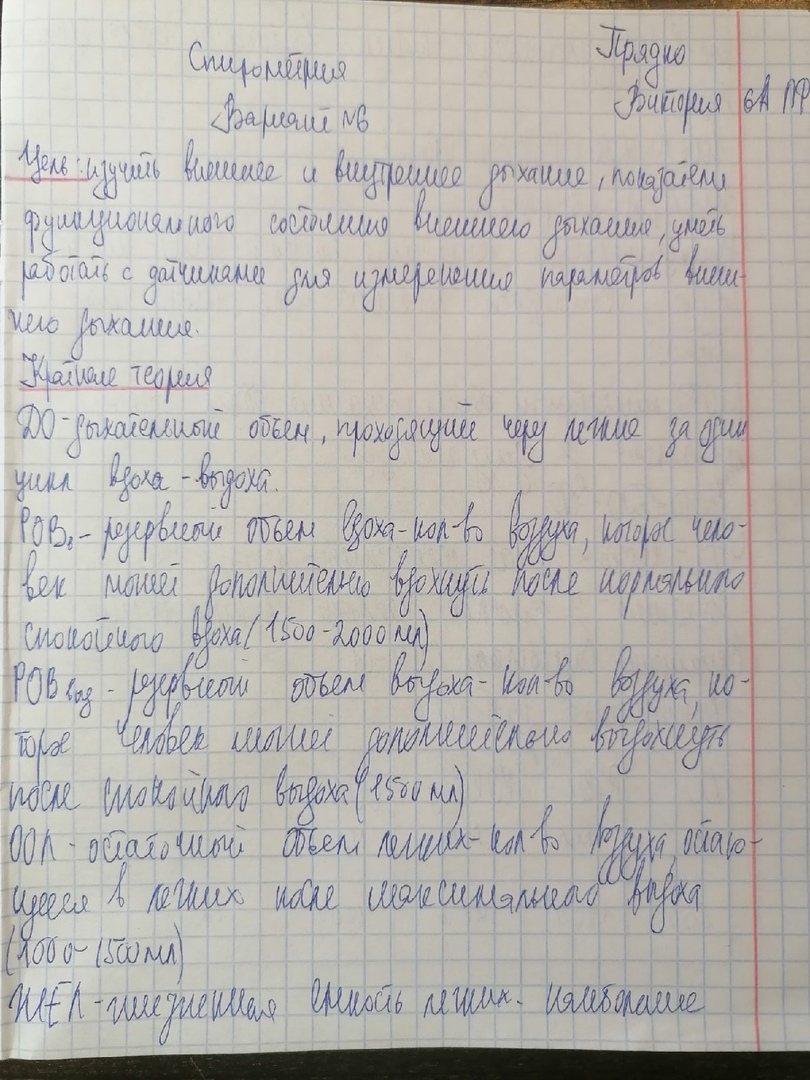 Спирометрия
Прядко
Вариант №6
Виктория 6А ПФ
Цель: изучить внешнее и внутреннее дыхание, показатели
функционального состояния внешнего дыхания, уметь
работать с датчиками для измерения параметров внеш-
него дыхания.
Краткая теория
ДО-дыхательный объем, проходящий через легкие за один
цикл вдоха-выдоха.
РОВв-резервный объем вдоха-кол-во воздуха, которое чело-
век может дополнительно вдохнуть после нормального
спокойного вдоха(1500-2000мл)
РОВвыд-резервный объем выдоха-кол-во воздуха, ко-
торое человек может дополнительно выдохнуть
после спокойного выдоха(1500мл)
ООЛ-остаточный объем легких-кол-во воздуха, остаю-
щееся в легких после максимального выдоха
(1000-1500мл)
ЖЕЛ-жизненная емкость легких. наибольшее